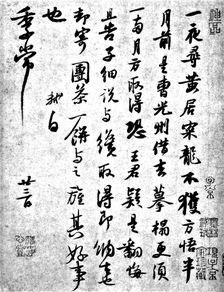 一夜尋黃居寀龍不獲方悟半
月前是曹光州借去摹榻更須
一兩月方取得恐王君疑是翻悔
且告子細說與纔取得即納去也
却寄團茶一餅與之旌其好事
也 軾白
季常
廿三日